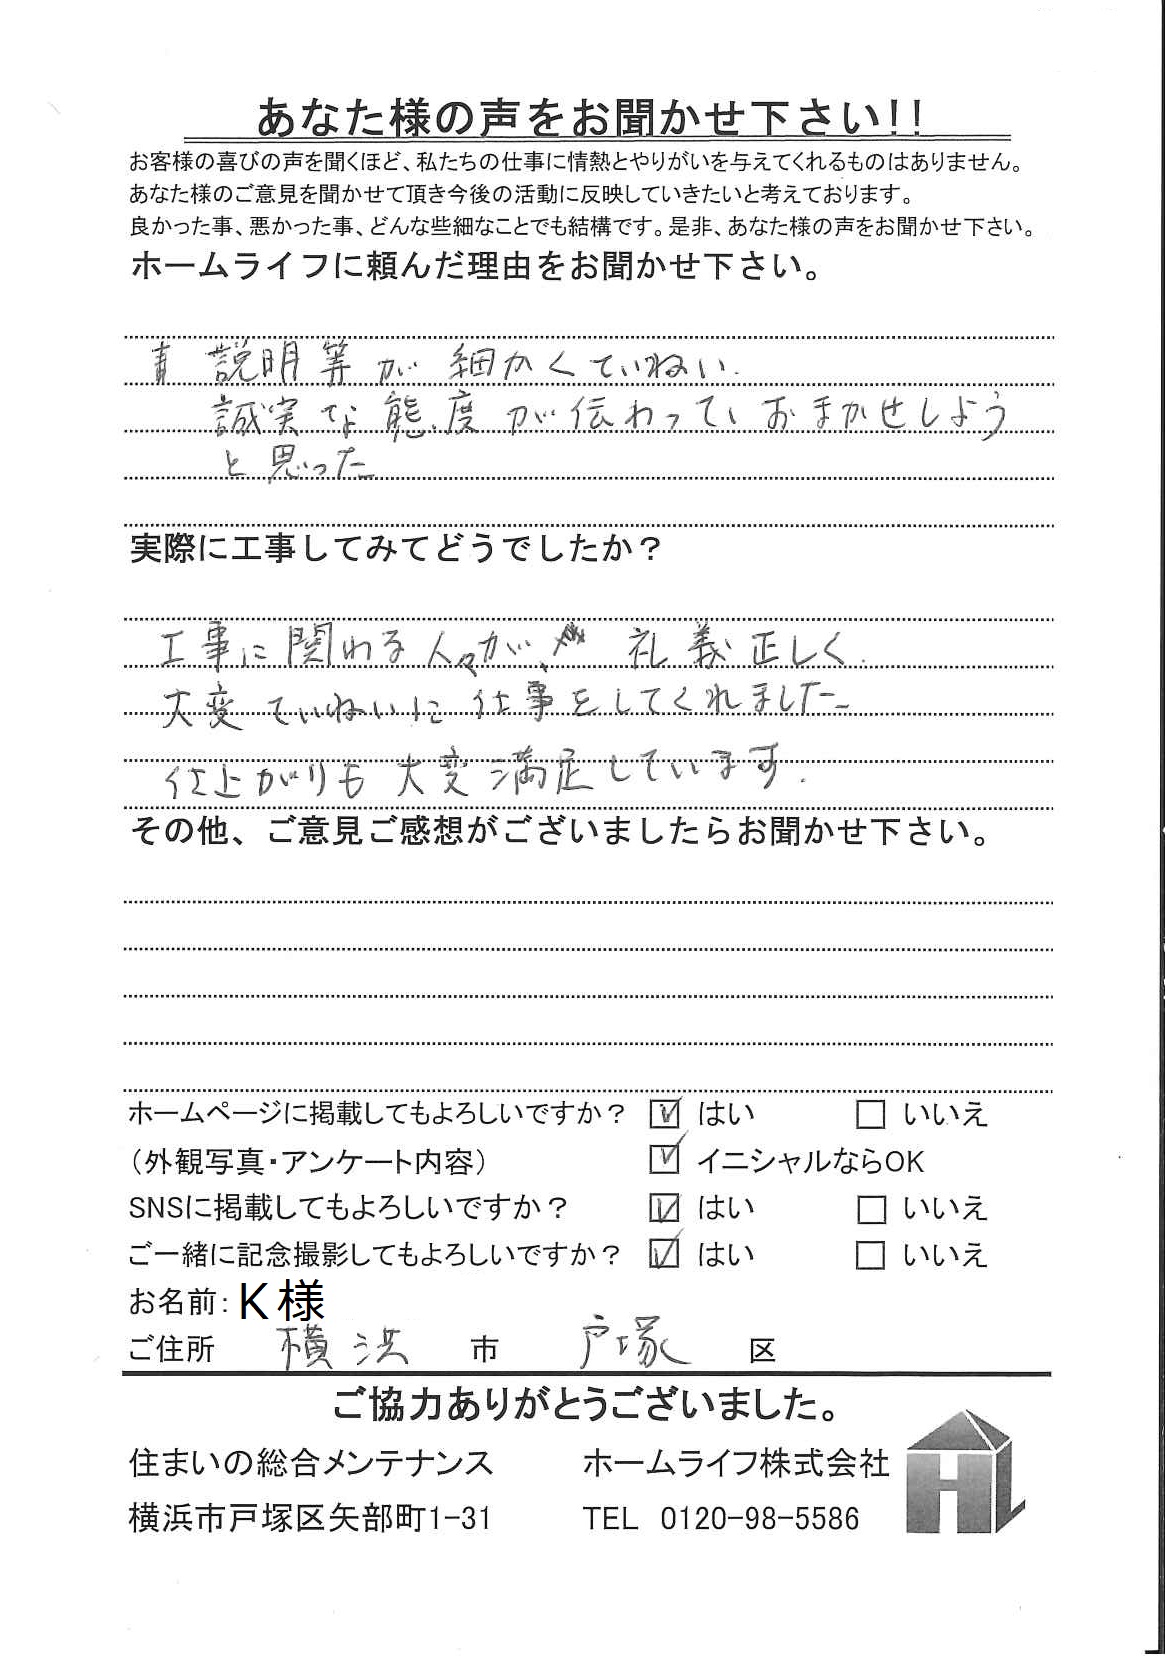 あなた様の声をお聞かせ下さい!!
お客様の喜びの声を聞くほど、私たちの仕事に情熱とやりがいを与えてくれるものはありません。
あなた様のご意見を聞かせて頂き今後の活動に反映していきたいと考えております。
良かった事、悪かった事、どんな些細なことでも結構です。是非、あなた様の声をお聞かせ下さい。
ホームライフに頼んだ理由をお聞かせ下さい。
説明等が細かくていねい.
誠実な態度が伝わっておまかせしよう
と思った
実際に工事してみてどうでしたか?
工事に関わる人々が、礼義正しく
大変ていねいに仕事をしてくれました
仕上がりも大変満足しています.
その他、ご意見ご感想がございましたらお聞かせ下さい。
ホームページに掲載してもよろしいですか? ☑ はい □ いいえ
(外観写真・アンケート内容) ☑ イニシャルならOK
SNSに掲載してもよろしいですか? ☑ はい □ いいえ
ご一緒に記念撮影してもよろしいですか? ☑ はい □ いいえ
お名前: K様
ご住所 横浜 市 戸塚 区
ご協力ありがとうございました。
住まいの総合メンテナンス ホームライフ株式会社
横浜市戸塚区矢部町1-31 TEL 0120-98-5586
HL